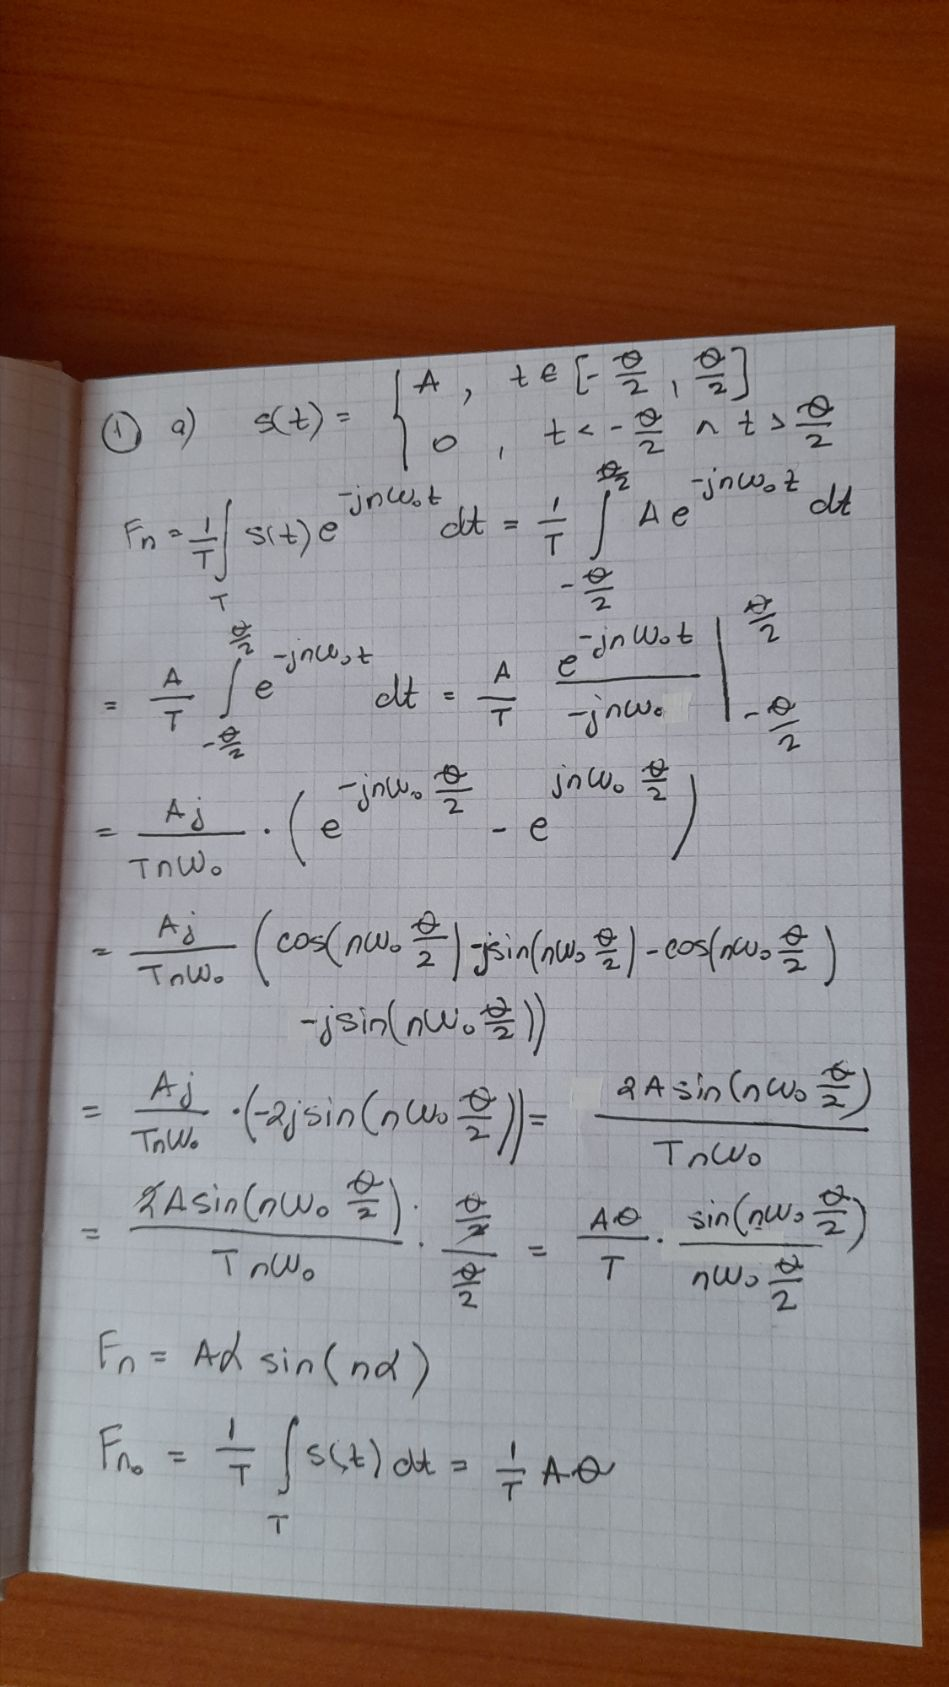 ① a) s(t) = { A , t ∈ [-θ/2 , θ/2]
0 , t < -θ/2 ∧ t > θ/2
Fn = 1/T ∫_T s(t) e^(-jnω₀t) dt = 1/T ∫_(-θ/2)^(θ/2) A e^(-jnω₀t) dt
= A/T ∫_(-θ/2)^(θ/2) e^(-jnω₀t) dt = A/T e^(-jnω₀t)/(-jnω₀) |_(-θ/2)^(θ/2)
= Aj/(Tnω₀) · (e^(-jnω₀ θ/2) - e^(jnω₀ θ/2))
= Aj/(Tnω₀) (cos(nω₀ θ/2) - jsin(nω₀ θ/2) - cos(nω₀ θ/2)
- jsin(nω₀ θ/2))
= Aj/(Tnω₀) · (-2jsin(nω₀ θ/2)) = 2A sin(nω₀ θ/2)/(Tnω₀)
= 2A sin(nω₀ θ/2)/(Tnω₀) · (θ/2)/(θ/2) = Aθ/T · sin(nω₀ θ/2)/(nω₀ θ/2)
Fn = Aα sin(nα)
Fn₀ = 1/T ∫_T s(t) dt = 1/T Aθ